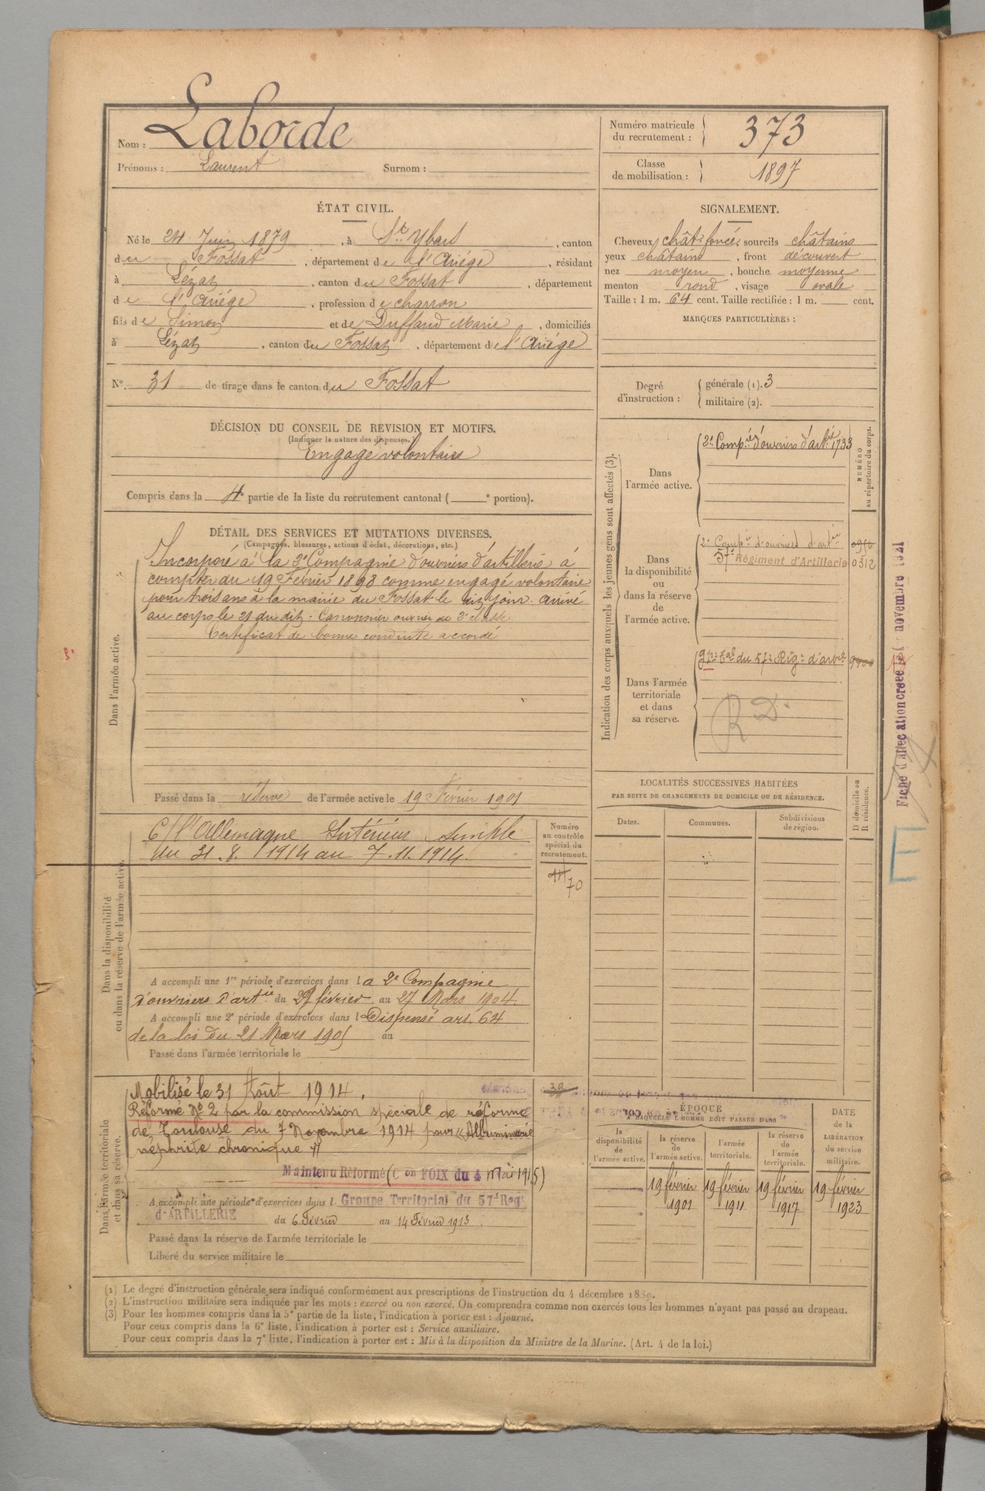 Nom : Laborde
Prénoms : Laurent Surnom :
Numéro matricule du recrutement : 373
Classe de mobilisation : 1897
ÉTAT CIVIL.
Né le 24 Juin 1879, à St Ybars, canton
du Fossat, département de l'Ariége, résidant
à Lézat, canton du Fossat, département
de l'Ariége, profession de charron
fils de Simon et de Duffaud Marie, domiciliés
à Lézat, canton du Fossat, département de l'Ariége
N° 31 de tirage dans le canton du Fossat
SIGNALEMENT.
Cheveux chât. foncé, sourcils châtains
yeux châtains, front découvert
nez moyen, bouche moyenne
menton rond, visage ovale
Taille : 1 m. 64 cent. Taille rectifiée : 1 m. cent.
MARQUES PARTICULIÈRES :
Degré d'instruction : générale (1). 3
militaire (2).
DÉCISION DU CONSEIL DE REVISION ET MOTIFS.
(Indiquer la nature des dispenses.)
Engagé volontaire
Compris dans la 4e partie de la liste du recrutement cantonal ( e portion).
DÉTAIL DES SERVICES ET MUTATIONS DIVERSES.
(Campagnes, blessures, actions d'éclat, décorations, etc.)
Dans l'armée active.
Incorporé à la 2e Compagnie d'ouvriers d'artillerie à
compter du 19 Février 1898 comme engagé volontaire
pour trois ans à la mairie du Fossat le dit jour. Arrivé
au corps le 21 du dit. Canonnier ouvrier de 2e classe
Certificat de bonne conduite accordé
Passé dans la réserve de l'armée active le 19 Février 1901
Indication des corps auxquels les jeunes gens sont affectés (3).
NUMÉRO au répertoire du corps.
Dans l'armée active.
2e Compie d'ouvriers d'artie 1733
Dans la disponibilité ou dans la réserve de l'armée active.
2e Compie d'ouvriers d'artie
57e Régiment d'Artillerie 0312
Dans l'armée territoriale et dans sa réserve.
gpe tal du 57e Rég. d'artie
R D.
Fiche d'affectation créée le novembre 1921
E
LOCALITÉS SUCCESSIVES HABITÉES
PAR SUITE DE CHANGEMENTS DE DOMICILE OU DE RÉSIDENCE.
Dates. Communes. Subdivisions de région. D domicile ou R résidence.
Dans la disponibilité ou dans la réserve de l'armée active.
C/ l'Allemagne Intérieur simple
du 31.8.1914 au 7.11.1914.
Numéro au contrôle spécial du recrutement.
70
A accompli une 1re période d'exercices dans la 2e Compagnie
d'ouvriers d'artie du 29 février au 27 Mars 1904.
A accompli une 2e période d'exercices dans l Dispensé art. 64
de la loi du 21 Mars 1905 au
Passé dans l'armée territoriale le
Dans l'armée territoriale et dans sa réserve.
Mobilisé le 31 Août 1914.
Réformé N° 2 par la commission spéciale de réforme
de Toulouse du 7 Novembre 1914 pour "Albuminurie
néphrite chronique"
Maintenu Réformé (C on FOIX du 4 Mai 1915)
A accompli une période d'exercices dans l Groupe Territorial du 57e Reg.
d'ARTILLERIE du 6 Février au 14 Février 1913
Passé dans la réserve de l'armée territoriale le
Libéré du service militaire le
ÉPOQUE
À LAQUELLE L'HOMME DOIT PASSER DANS
la disponibilité de l'armée active. la réserve de l'armée active. l'armée territoriale. la réserve de l'armée territoriale. DATE de la LIBÉRATION du service militaire.
19 février 1901 19 février 1911 19 février 1917 19 février 1923
(1) Le degré d'instruction générale sera indiqué conformément aux prescriptions de l'instruction du 4 décembre 1889.
(2) L'instruction militaire sera indiquée par les mots : exercé ou non exercé. On comprendra comme non exercés tous les hommes n'ayant pas passé au drapeau.
(3) Pour les hommes compris dans la 5e partie de la liste, l'indication à porter est : Ajourné.
Pour ceux compris dans la 6e liste, l'indication à porter est : Service auxiliaire.
Pour ceux compris dans la 7e liste, l'indication à porter est : Mis à la disposition du Ministre de la Marine. (Art. 4 de la loi.)